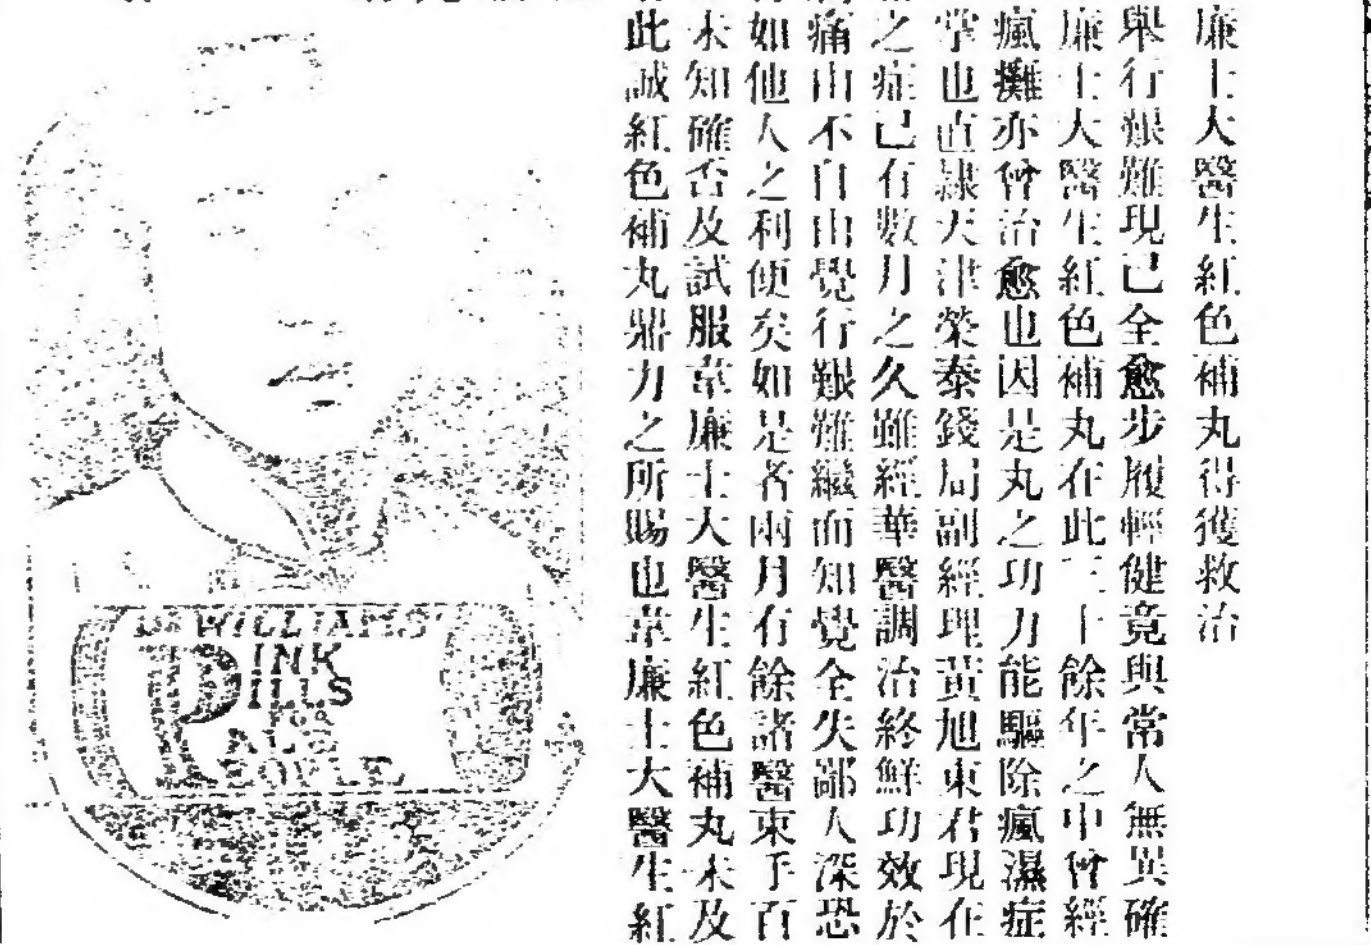 廉士大醫生紅色補丸得獲救治
舉行艱難現已全愈步履輕健竟與常人無異確
廉士大醫生紅色補丸在此三十餘年之中曾經
瘋癱亦曾治愈也因是丸之功力能驅除瘋濕症
掌也直隸天津榮泰錢局副經理黃旭東君現在
之症已有數月之久雖經華醫調治終鮮功效於
痛由不自由覺行艱難繼而知覺全失鄙人深恐
如他人之利便矣如是者兩月有餘諸醫束手百
未知確否及試服韋廉士大醫生紅色補丸未及
此誠紅色補丸鼎力之所賜也韋廉士大醫生紅
DR WILLIAMS'
PINK
PILLS
FOR
PALE
PEOPLE